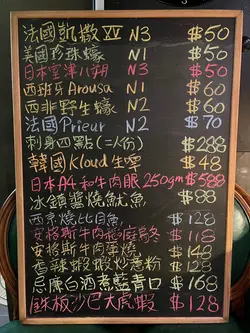 法國凱撒 XV N3 $50
美國珍珠蠔 N1 $50
日本室津八朔 N3 $50
西班牙Arousa N1 $60
西非野生蠔 N2 $60
法國Prieur N2 $70
刺身四點(二人份) $288
韓國Kloud生啤 $48
日本A4和牛肉眼250gm $588
冰鎮醬燒魷魚 $88
西京燒比目魚 $128
安格斯牛肉 $118
安格斯牛肉 $148
香辣蝦炒意粉 $128
尼庫白酒煮藍青口 $168
鐵板沙巴大虎蝦 $128